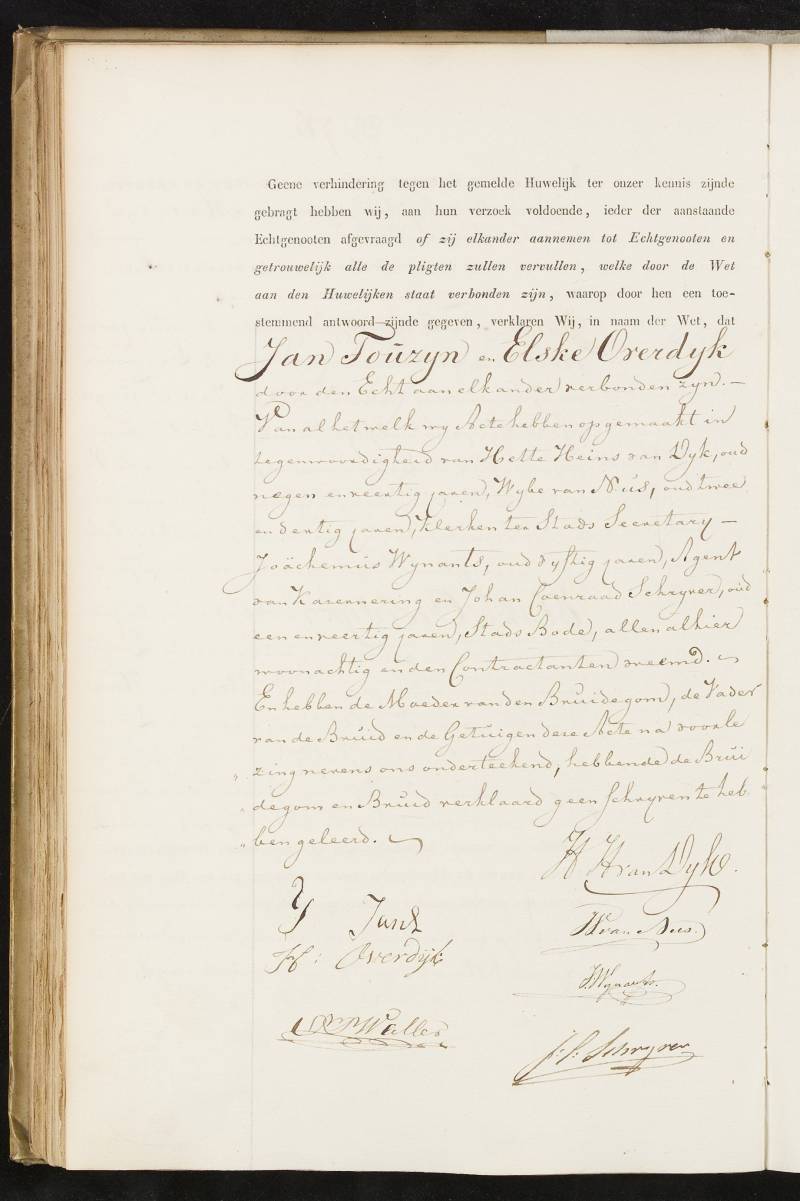 Geene verhindering tegen het gemelde Huwelijk ter onzer kennis zijnde
gebragt hebben wij, aan hun verzoek voldoende, ieder der aanstaande
Echtgenooten afgevraagd of zij elkander aannemen tot Echtgenooten en
getrouwelijk alle de pligten zullen vervullen, welke door de Wet
aan den Huwelijken staat verbonden zijn, waarop door hen een toe-
stemmend antwoord zijnde gegeven, verklaren Wij, in naam der Wet, dat
Jan Toŭzyn en Elske Overdyk
door den Echt aan elkander verbonden zyn. —
Van al hetwelk wy Acte hebben opgemaakt in
tegenwoordigheid van Hette Heins van Dyk, oud
negen en veertig jaren, Wybe van Nŭs, oud twee
en dertig jaren, Klerken ter Stads Secretary —
Joächemŭs Wynants, oud vyftig jaren, Agent
van Kasernering en Johan Coenraad Schryver, oŭd
een en veertig jaren, Stads Bode, allen alhier
woonachtig en den Contractanten vreemd.
En hebben de Moeder van den Brŭidegom, de Vader
van de Brŭid en de Getŭigen deze Acte na voorle
„ zing nevens ons onderteekend, hebbende de Brŭi
„ degom en Brŭid verklaard geen schryven te heb
„ ben geleerd.
H H van Dyk.
Y Jans
W van Nus.
H: Overdijk
J. Wynants.
Waller
J: C: Schryver